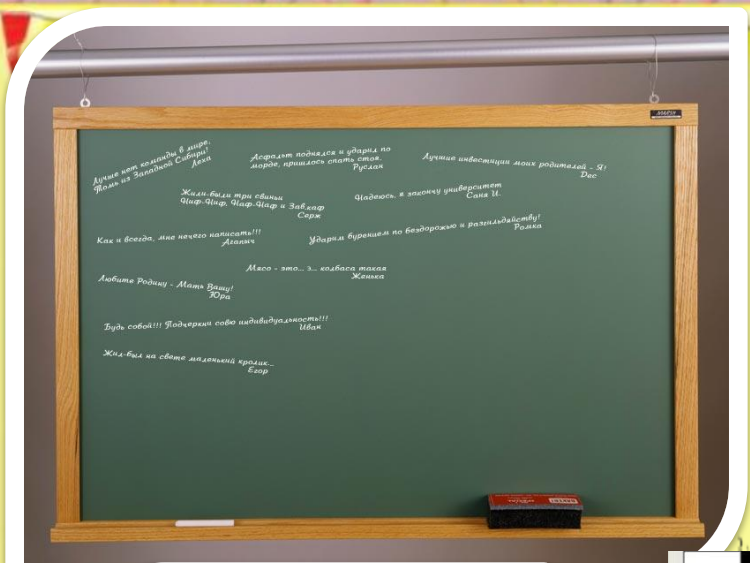 Лучше нет команды в мире,
Томь из Западной Сибири!
Леха
Асфальт поднялся и ударил по
морде, пришлось спать стоя.
Руслан
Лучшие инвестиции моих родителей - Я!
Dес
Жили-были три свиньи
Ниф-Ниф, Наф-Наф и Завхаф
Серж
Надеюсь, я закончу университет
Саня И.
Как и всегда, мне нечего написать!!!
Агапыч
Ударим бурением по бездорожью и разгильдяйству!
Ромка
Мясо - это... э... колбаса такая
Женька
Любите Родину - Мать Вашу!
Юра
Будь собой!!! Подчеркни совю индивидуальность!!!
Иван
Жил-был на свете маленький кролик...
Егор